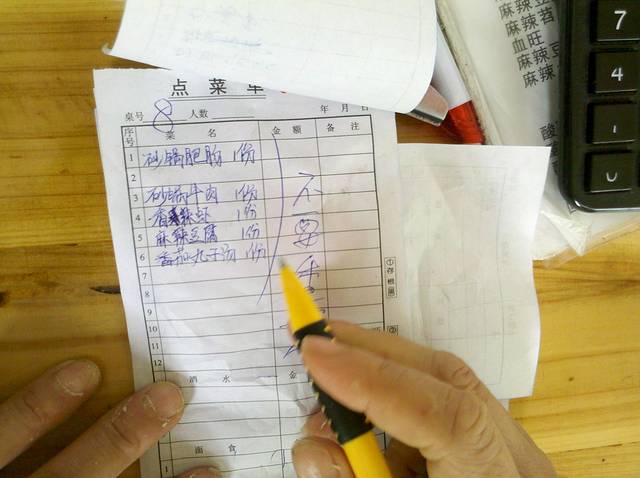 点菜单
桌号 8 人数 年 月 日
序号 菜 名 金 额 备 注
1 砂锅肥肠 1份
2
3 砂锅牛肉 1份
4 香辣虾 1份
5 麻辣豆腐 1份
6 番茄丸子汤 1份
7
8
9
10
11
12
不要
①存根
酒 水 金
面 食
1
麻辣
麻辣
血旺
麻辣豆
麻辣
酸
7
4
1